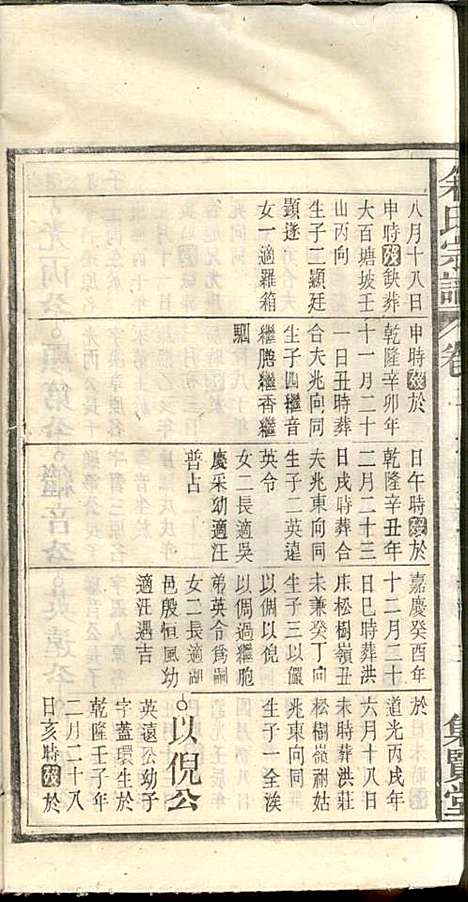 八月十八日
申時歿缺葬
大百塘坡壬
山丙向
生子二顯廷
顯遂
女一適羅箱
申時歿於
乾隆辛卯年
十一月二十
一日丑時葬
合夫兆向同
生子四繼音
繼膳繼香繼
駟
日午時歿於
乾隆辛丑年
二月二十三
日戌時葬合
夫兆東向同
生子二英遠
英令
女二長適吳
慶采幼適汪
普占
嘉慶癸酉年
十二月二十
日巳時葬洪
庄松樹嶺丑
未兼癸丁向
生子三以儼
以倜以倪
以倜過繼胞
弟英令為嗣
女二長適湖
邑殷恒風幼
適汪遇吉
於
道光丙戌年
六月十八日
未時葬洪莊
松樹嶺祔姑
兆東向同
生子一全渓
以倪公
英遠公幼子
字蓋環生於
乾隆壬子年
二月二十八
日亥時歿於
氏宗譜
卷
集賢堂